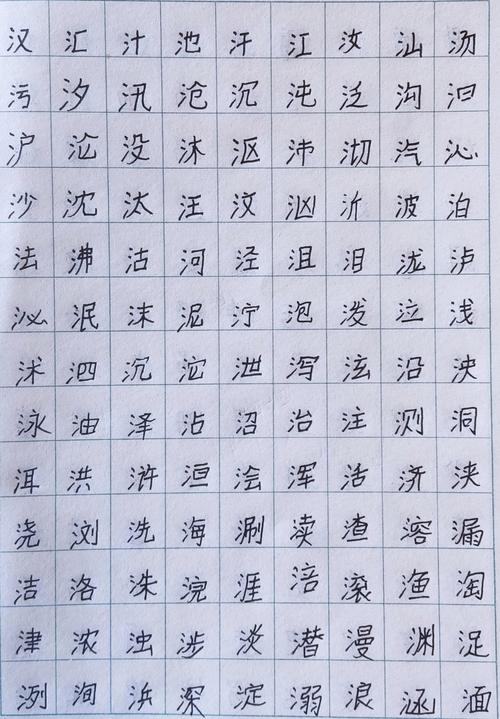 汉汇汁池汗江汝汕汤
污汐汛沧沉沌泛沟汩
沪沦没沐沤沛沏汽沁
沙沈汰汪汶汹沂波泊
法沸沽河泾沮泪泷泸
泌泯沫泥泞泡泼泣浅
沭泗沉沱泄泻泫沿泱
泳油泽沾沼治注测洞
洱洪浒洹浍浑活济浃
浇浏洗海涮渎渣溶漏
洁洛洙浣涯涪滚渔淘
津浓浊涉淡潜漫渊浞
洌洵浜深淀溺浪涵湎